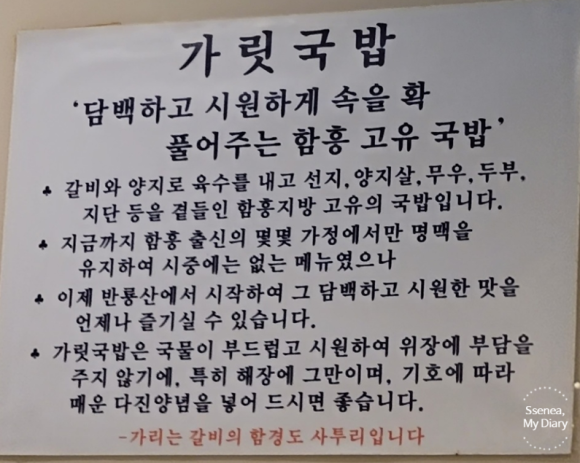 가릿국밥
‘담백하고 시원하게 속을 확
풀어주는 함흥 고유 국밥’
♣ 갈비와 양지로 육수를 내고 선지,양지살,무우,두부,
지단 등을 곁들인 함흥지방 고유의 국밥입니다.
♣ 지금까지 함흥 출신의 몇몇 가정에서만 명맥을
유지하여 시중에는 없는 메뉴였으나
♣ 이제 반룡산에서 시작하여 그 담백하고 시원한 맛을
언제나 즐기실 수 있습니다.
♣ 가릿국밥은 국물이 부드럽고 시원하여 위장에 부담을
주지 않기에, 특히 해장에 그만이며, 기호에 따라
매운 다진양념을 넣어 드시면 좋습니다.
-가리는 갈비의 함경도 사투리입니다
Ssenea,
My Diary